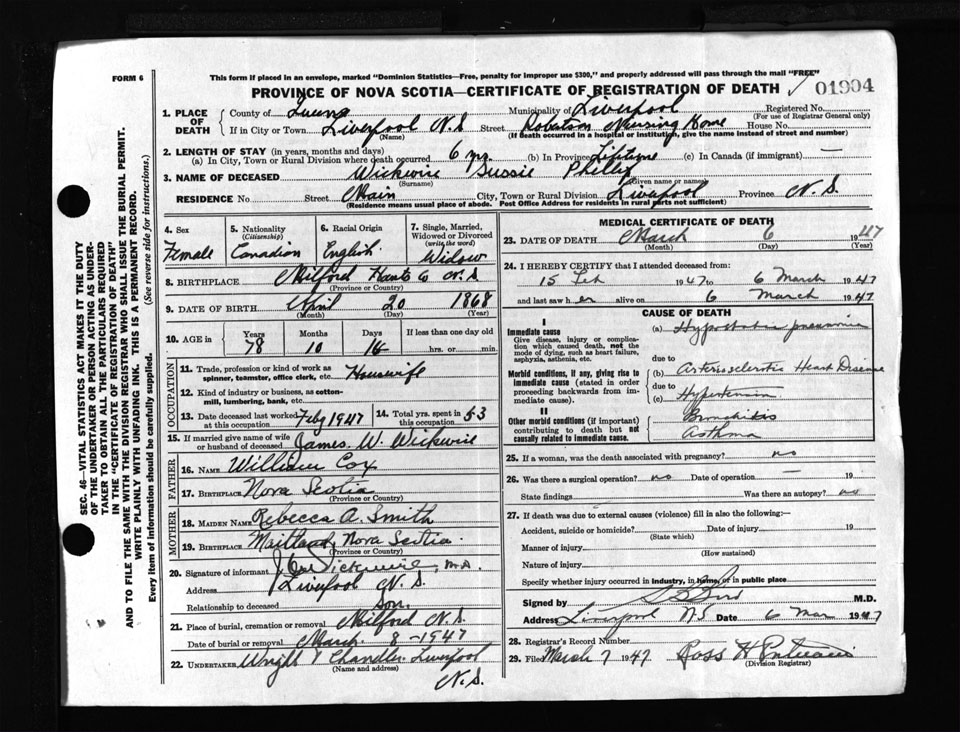 FORM 6
This form if placed in an envelope, marked "Dominion Statistics—Free, penalty for improper use $300," and properly addressed will pass through the mail "FREE"
PROVINCE OF NOVA SCOTIA—CERTIFICATE OF REGISTRATION OF DEATH 01904
1. PLACE OF DEATH County of Queens Municipality of Liverpool Registered No.
(For use of Registrar General only)
If in City or Town Liverpool N.S Street Robertson Nursing Home House No.
(Name) (If death occurred in a hospital or institution, give the name instead of street and number)
2. LENGTH OF STAY (in years, months and days)
(a) In City, Town or Rural Division where death occurred 6 yrs. (b) In Province Lifetime (c) In Canada (if immigrant) —
3. NAME OF DECEASED Wickwire Sussie
(Surname) (Given name or names)
RESIDENCE No. Street Main City, Town or Rural Division Liverpool Province N.S.
(Residence means usual place of abode. Post Office Address for residents in rural parts not sufficient)
4. Sex 5. Nationality (Citizenship) 6. Racial Origin 7. Single, Married, Widowed or Divorced (write the word)
Female Canadian English Widow
8. BIRTHPLACE Milford Hants Co N.S
(Province or Country)
9. DATE OF BIRTH April 20 1868
(Month) (Day) (Year)
10. AGE in Years Months Days If less than one day old
78 10 14 hrs. or min.
OCCUPATION
11. Trade, profession or kind of work as spinner, teamster, office clerk, etc. Housewife
12. Kind of industry or business, as cotton-mill, lumbering, bank, etc.
13. Date deceased last worked at this occupation Feby 1947 14. Total yrs. spent in this occupation 53
15. If married give name of wife or husband of deceased James W. Wickwire
FATHER
16. NAME William Cox
17. BIRTHPLACE Nova Scotia
(Province or Country)
MOTHER
18. MAIDEN NAME Rebecca A. Smith
19. BIRTHPLACE Maitland, Nova Scotia.
(Province or Country)
20. Signature of informant Wickwire, M.D.
Address Liverpool N.S.
Relationship to deceased son.
21. Place of burial, cremation or removal Milford N.S.
Date of burial or removal March 8-1947
22. UNDERTAKER Wright & Chandler Liverpool
(Name and address) N.S.
MEDICAL CERTIFICATE OF DEATH
23. DATE OF DEATH March 6 1947
(Month) (Day) (Year)
24. I HEREBY CERTIFY that I attended deceased from:
15 Feb 1947 to 6 March 1947
and last saw her alive on 6 March 1947
CAUSE OF DEATH
I
Immediate cause
Give disease, injury or complication which caused death, not the mode of dying, such as heart failure, asphyxia, asthenia, etc.
(a) Hypostatic pneumonia
due to
Morbid conditions, if any, giving rise to immediate cause (stated in order proceeding backwards from immediate cause).
(b) Arteriosclerotic Heart Disease
due to
(c) Hypertension
II
Other morbid conditions (if important) contributing to death but not causally related to immediate cause.
Bronchitis
Asthma
25. If a woman, was the death associated with pregnancy? no
26. Was there a surgical operation? no Date of operation — 19
State findings Was there an autopsy? no
27. If death was due to external causes (violence) fill in also the following:—
Accident, suicide or homicide? Date of injury 19
(State which)
Manner of injury
(How sustained)
Nature of injury
Specify whether injury occurred in industry, in home, or in public place
Signed by M.D.
Address Liverpool NS Date 6 Mar 1947
28. Registrar's Record Number
29. Filed March 7 1947 Ross H
(Division Registrar)
SEC. 46—VITAL STATISTICS ACT MAKES IT THE DUTY
OF THE UNDERTAKER OR PERSON ACTING AS UNDERTAKER
TO OBTAIN ALL THE PARTICULARS REQUIRED
IN THE "CERTIFICATE OF REGISTRATION OF DEATH"
AND TO FILE THE SAME WITH THE DIVISION REGISTRAR WHO SHALL ISSUE THE BURIAL PERMIT.
WRITE PLAINLY WITH UNFADING INK. THIS IS A PERMANENT RECORD.
Every item of information should be carefully supplied. (See reverse side for instructions.)